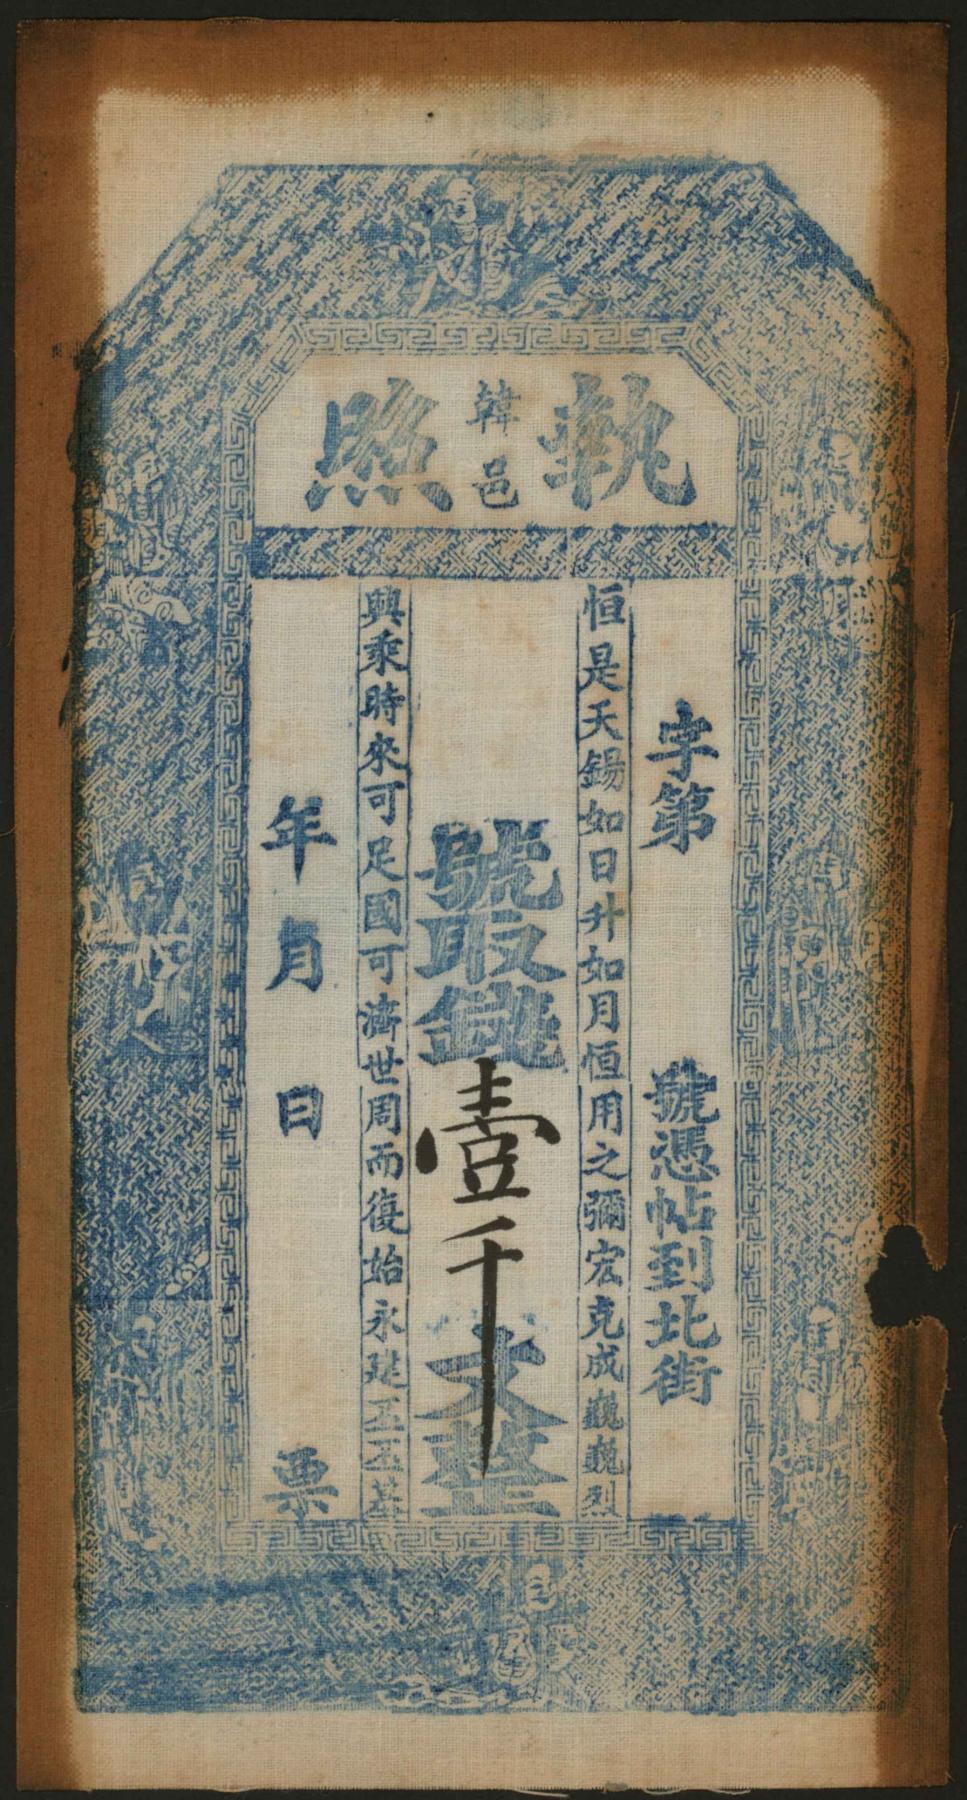 執照
韓邑
字第 號憑帖到北街
恒是天錫如日升如月恒用之彌宏克成巍巍烈
號取錢壹千文整
興乘時來可足國可濟世周而復始永建丕丕基
年月日 票